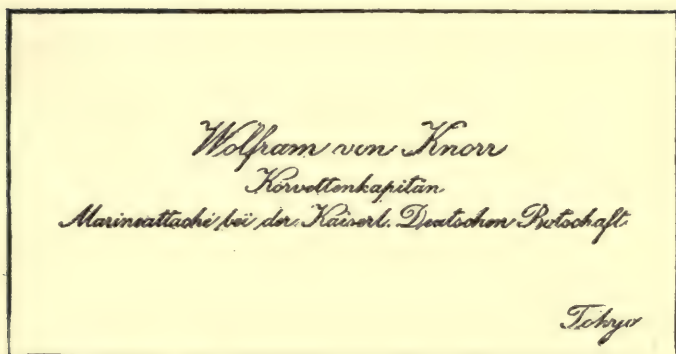 Wolfram von Knorr
Korvettenkapitän
Marineattaché bei der Kaiserl. Deutschen Botschaft
Tokyo